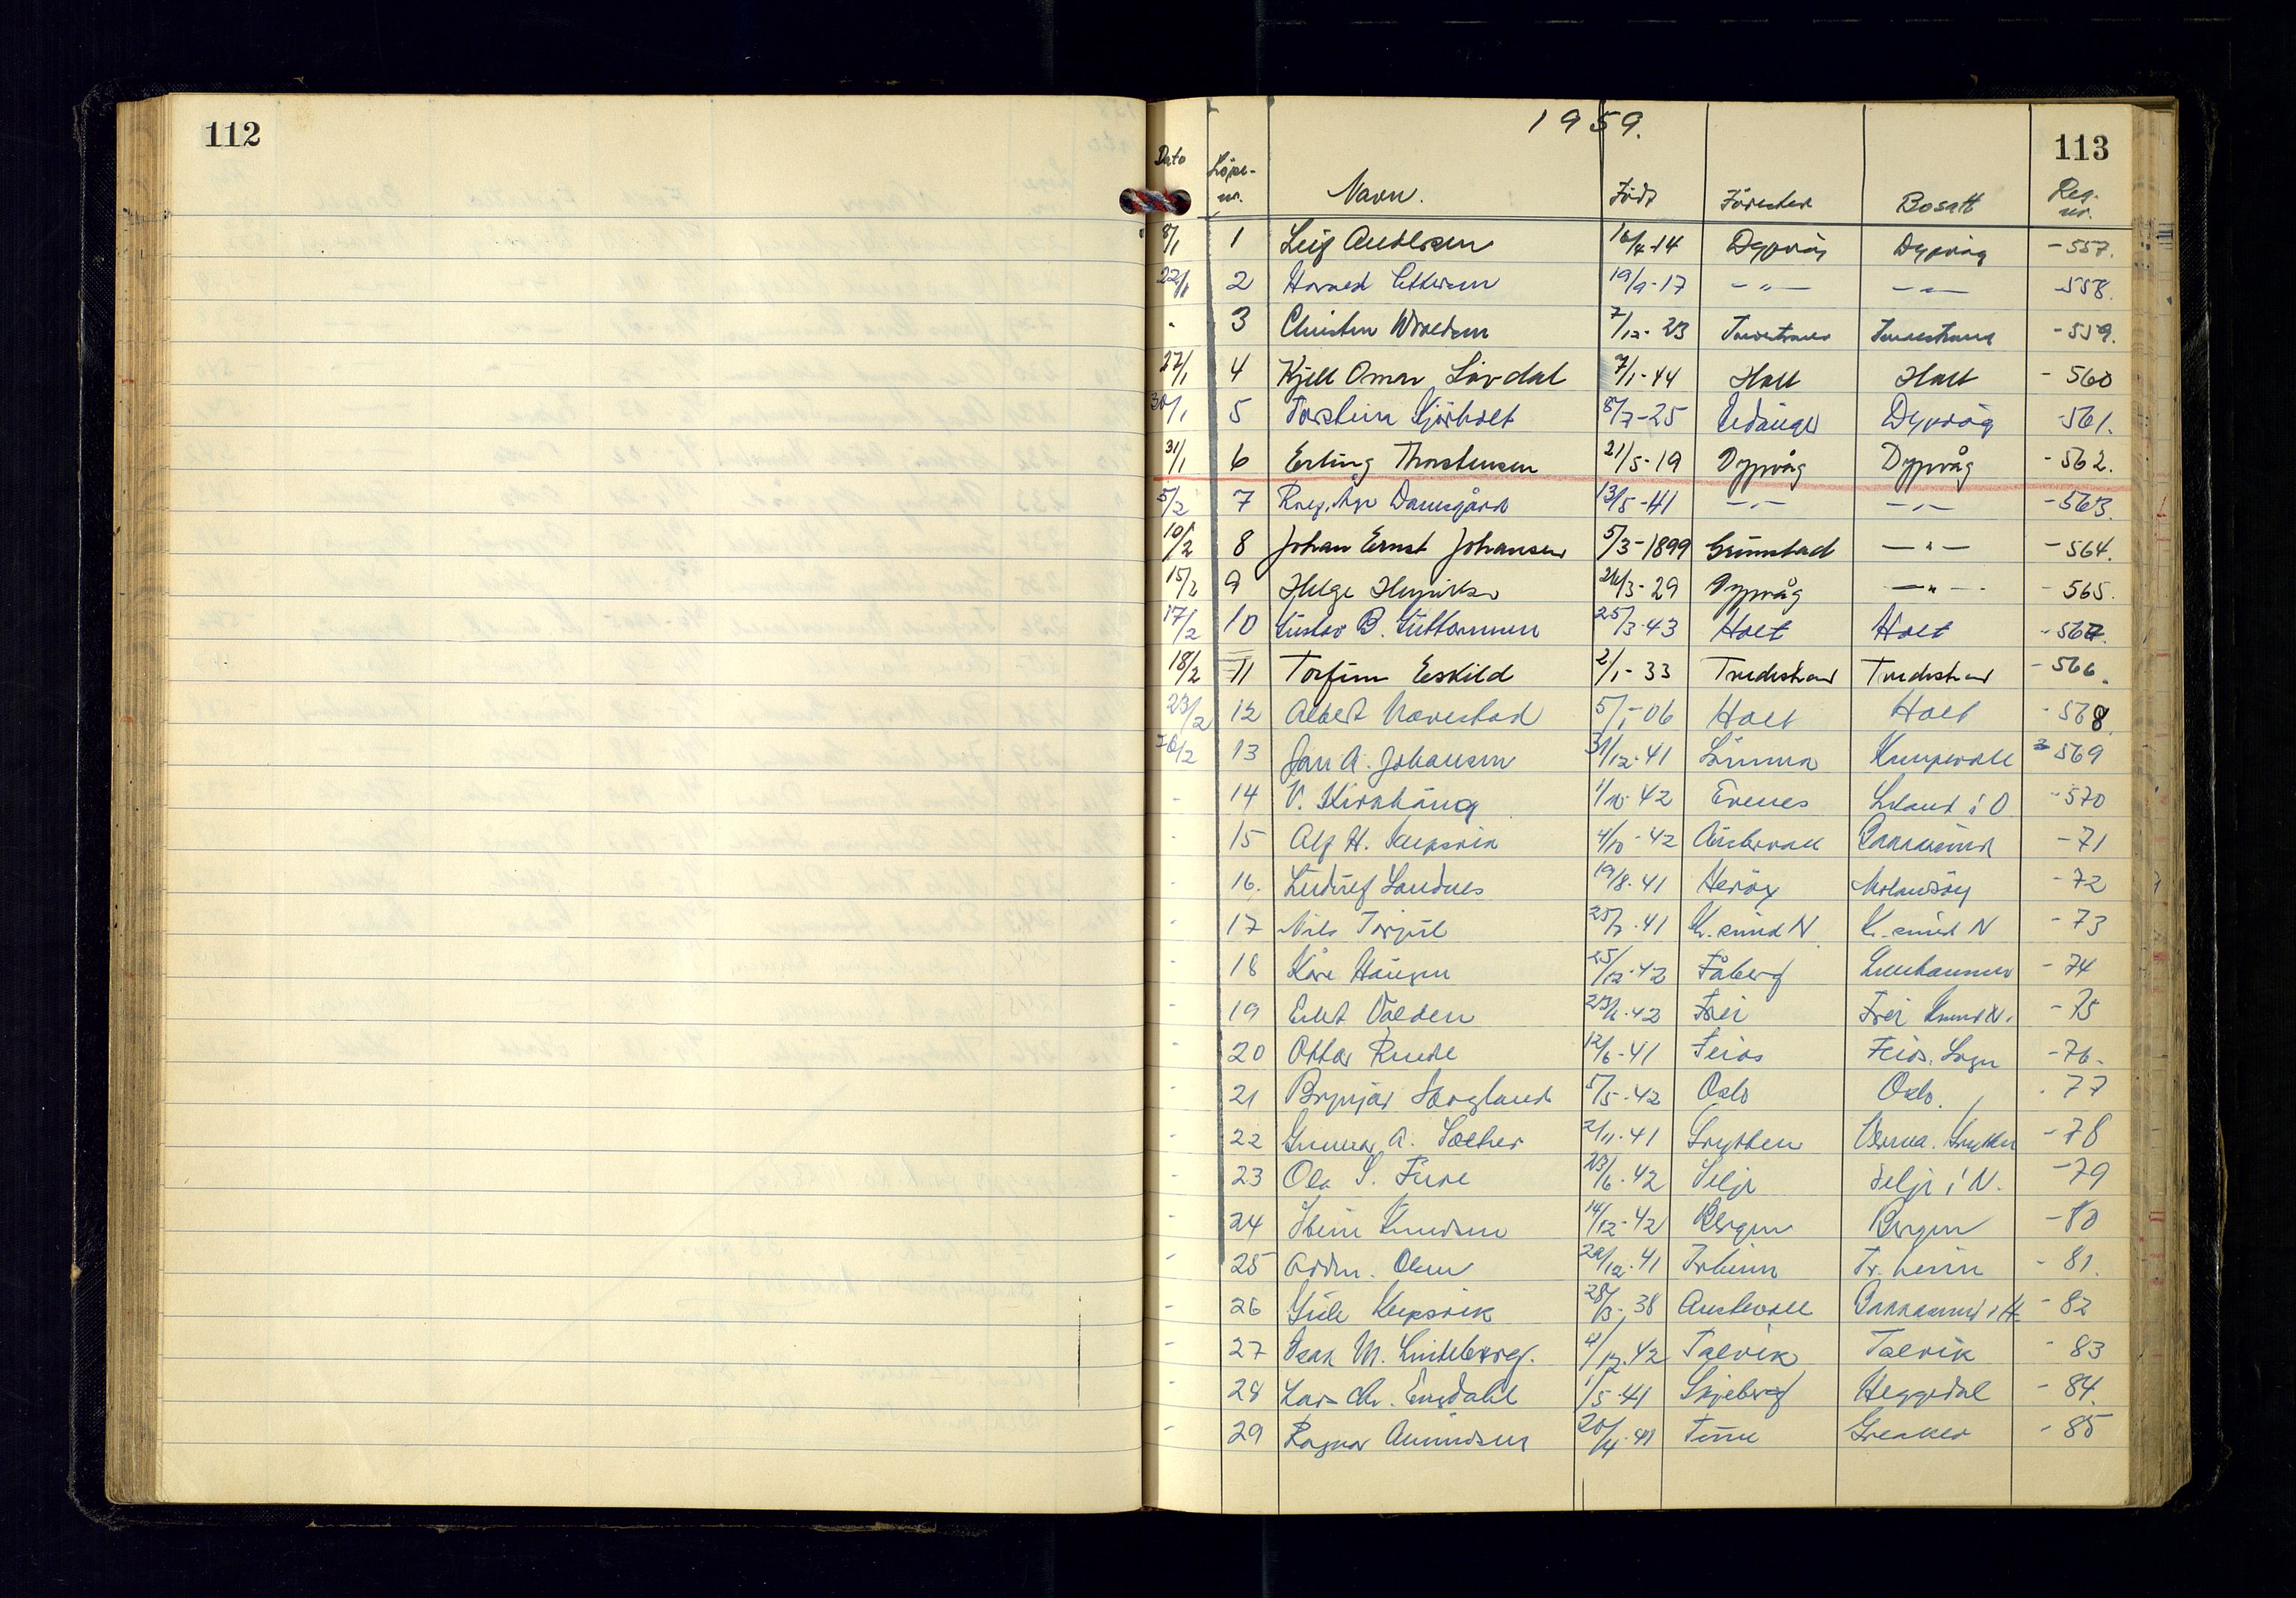 112
1959.
113
Dato Løpe-nr. Navn. Född Förested Bosatt Reg. nr.
8/1 1 Leif Andersen 16/4-14 Dypvåg Dypvåg -557.
22/1 2 Harald 19/9-17 -"- -"- -558.
- 3 Christen 7/12-23 Tvedestrand Tvedestrand -559.
27/1 4 Kjell Omar Lövdal 7/1-44 Holt Holt -560
30/1 5 Torstein 8/7-25 Dypvåg -561.
31/1 6 Erling Thorstensen 21/5-19 Dypvåg Dypvåg -562.
5/2 7 Damsgård 13/5-41 -"- -"- -563.
10/2 8 Johan Ernst Johansen 5/3-1899 Grimstad -"- -564.
15/2 9 Helge Henriksen 26/3-29 Dypvåg -"- -565.
17/2 10 Gustav B. Guttormsen 25/3-43 Holt Holt -567.
18/2 11 Torfinn Eskild 2/1-33 Tvedestrand Tvedestrand -566.
23/2 12 Albert Navestad 5/1-06 Holt Holt -568.
26/2 13 Jan A. Johansen 31/12-41 -569
- 14 V. 1/10-42 Evenes i O -570
- 15 Alf H. 4/10-42 Austevoll -71
- 16. Landnes 19/8-41 Heröy -72
- 17 Nils 25/7-41 Kr.sund N Kr.sund N -73
- 18 Kåre Haugen 25/12-42 Fåberg Lillehammer -74
- 19 Valden -42 Frei Frei Krsund N. -75
- 20 Ottar 12/6-41 Feios Feios. Sogn -76-
- 21 Brynjar Haagland 5/5-42 Oslo Oslo. -77
- 22 Gunnar A. 2/11-41 Grytten Verma. Grytten -78
- 23 Ola S. Fure 23/6-42 Selje Selje i N. -79
- 24 Stein Knudsen 14/12-42 Bergen Bergen -80
- 25 Olsen 29/12-41 Tr.heim Tr.heim -81.
- 26 28/3-38 Austevoll i H -82
- 27 Isak M. Lindeberg. 4/12-42 Talvik Talvik -83
- 28 Lars Chr. Engdahl 1/5-41 Skjeberg Heggedal -84.
- 29 Ragnar Amundsen 20/4-41 Tune Greaker -85